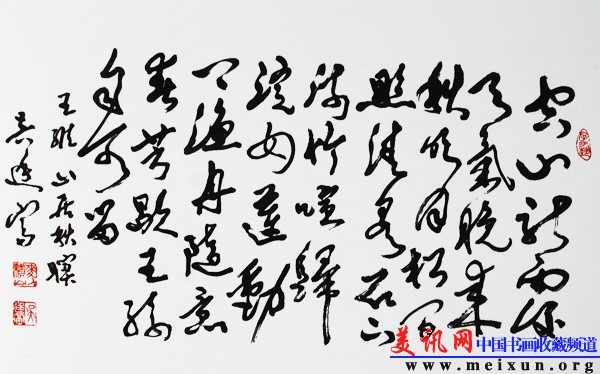 空山新雨後
天氣晚来
秋明月松間
照清泉石上
流竹喧歸
浣女蓮動
下漁舟隨意
春芳歇王孫
自可留
王維山居秋暝
美讯网 中国书画收藏频道
www.meixun.org